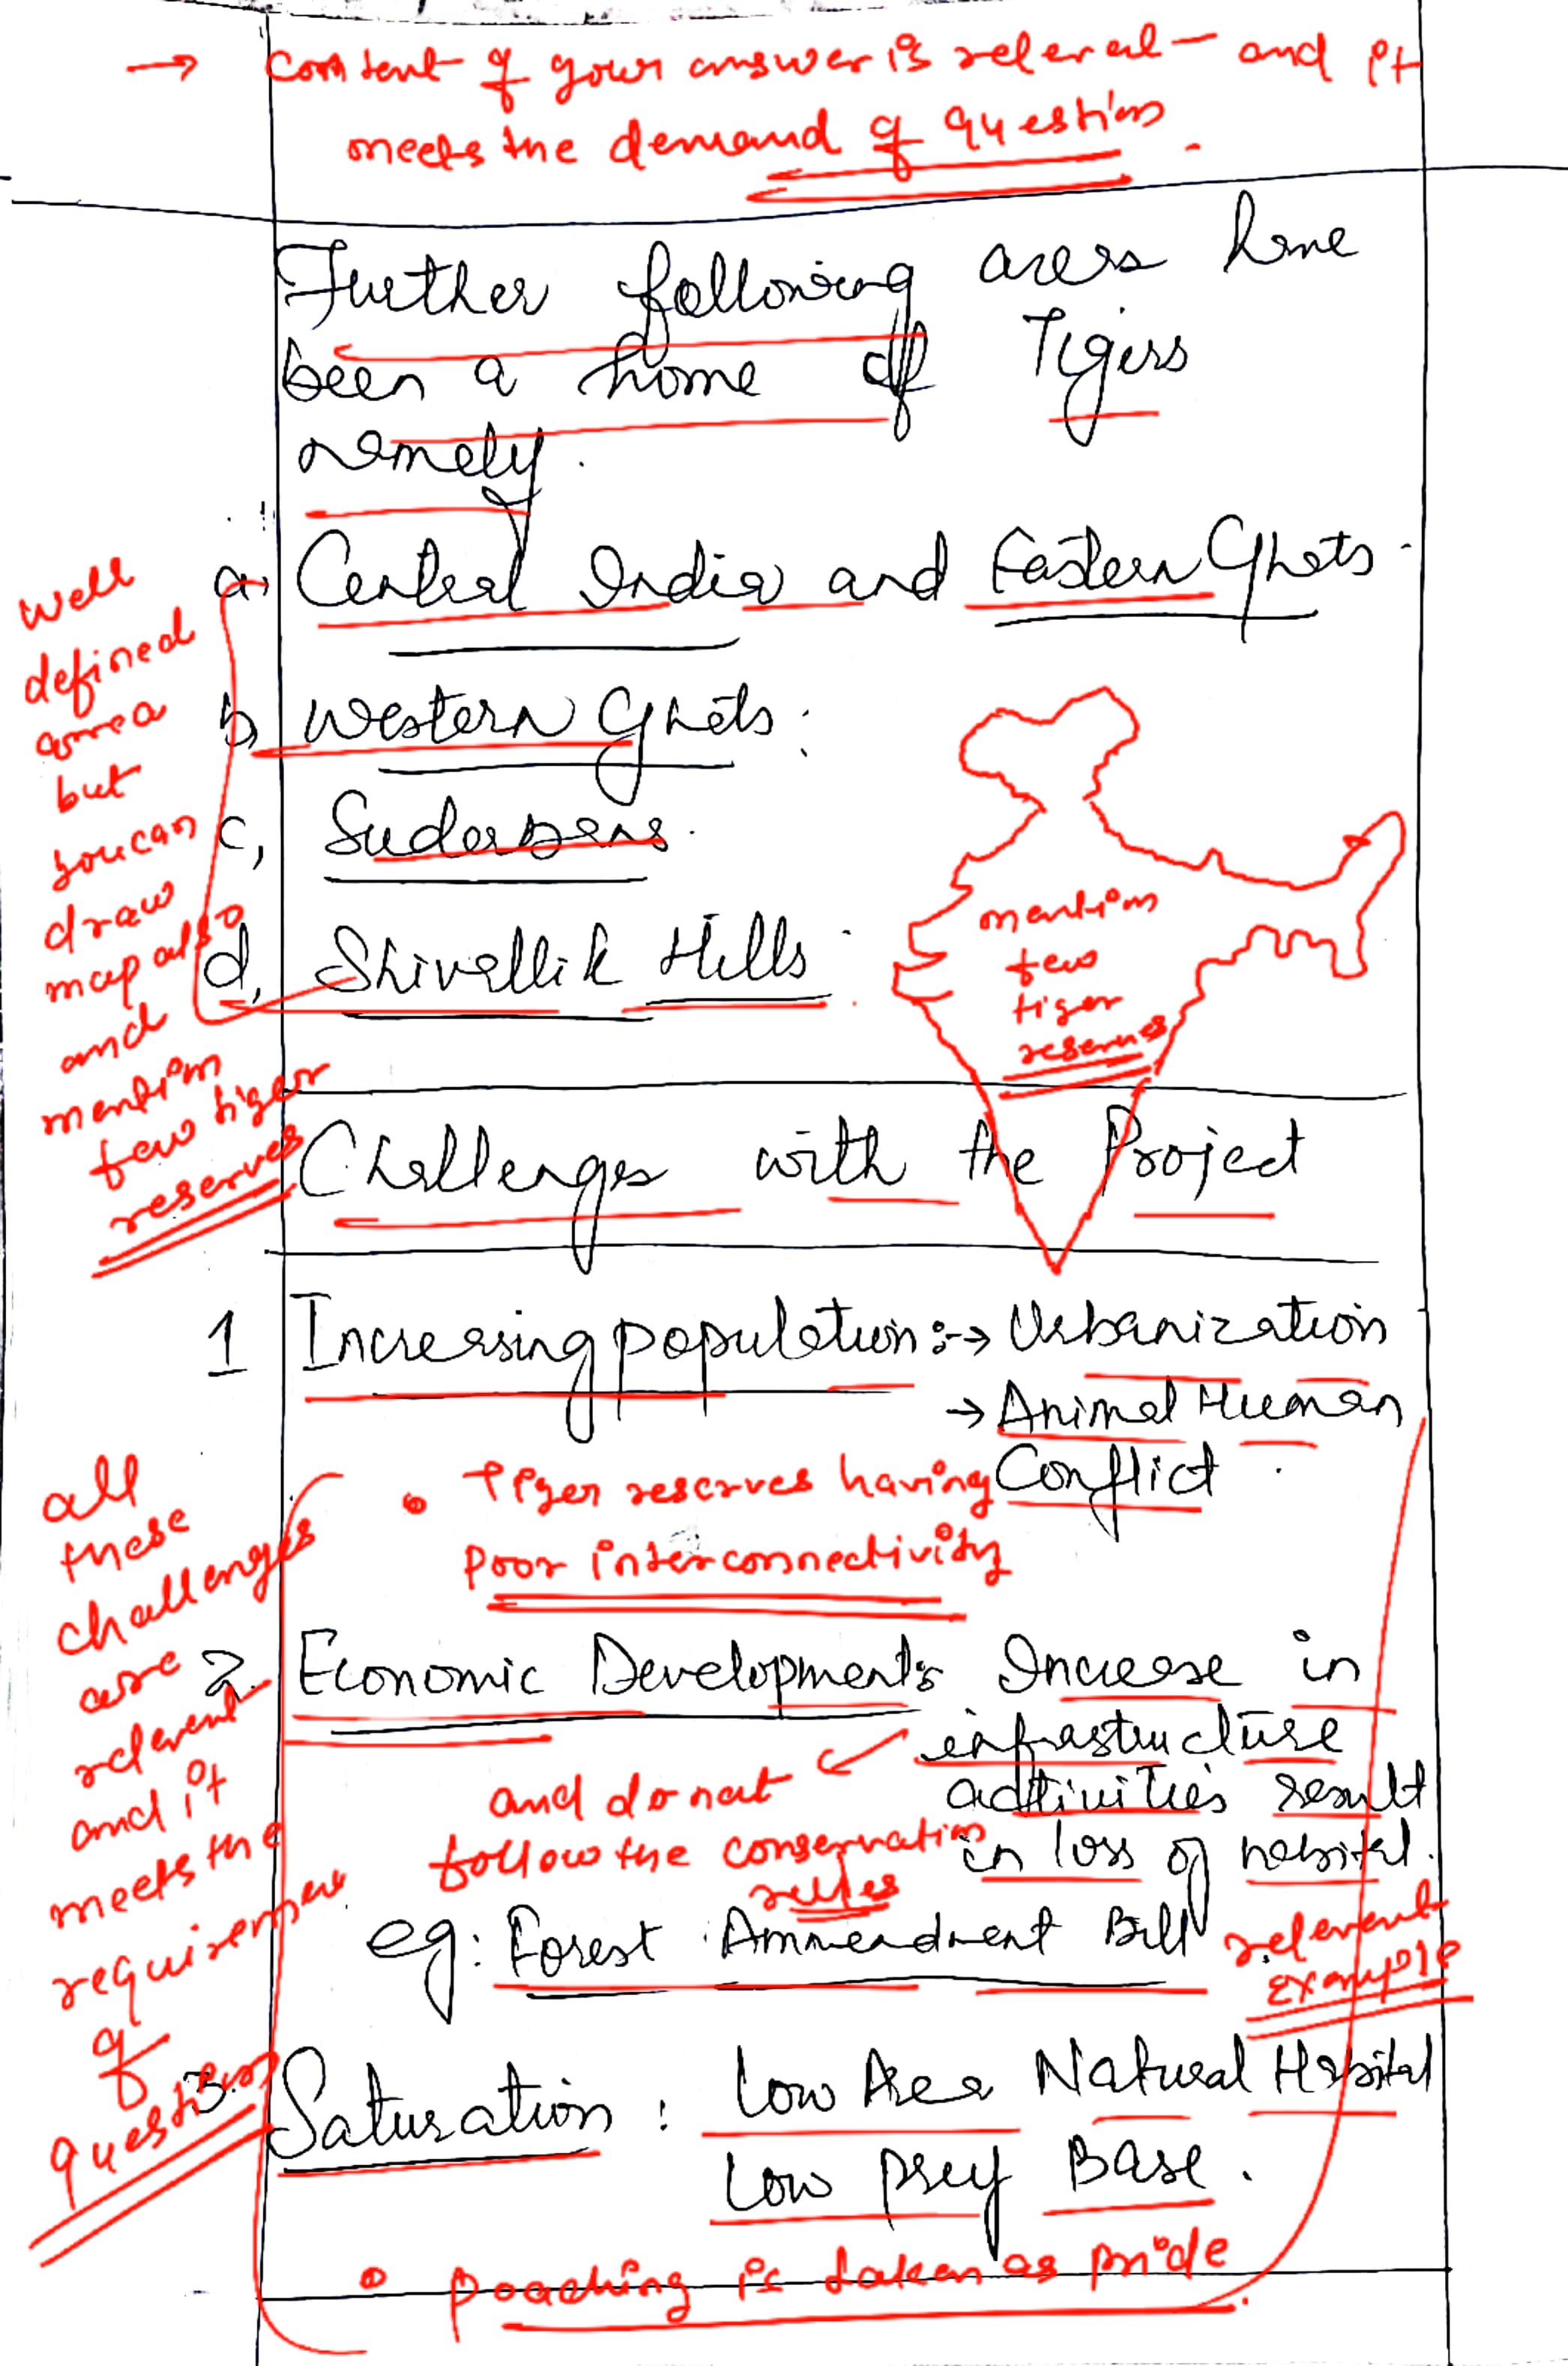 → Content of your answer is relevent and it
meets the demand of question.
Further following areas have
been a home of Tigers
namely.
a. Central India and Eastern Ghats.
b, Western Ghats:
c, Sudarbans.
d, Shivallik Hills.
well
defined
area
but
you can
draw
map also
and
mention
few tiger
reserves
mention
few
tiger
reserves
Challenges with the Project
1 Increasing population :-→ Urbanization
→ Animal Human
Conflict.
• tiger reserves having
poor interconnectivity
2. Economic Development: Increase in
infrastructure
activities result
in loss of habitat.
and do not
follow the conservation
rules
eg: Forest Ammendment Bill
relevent
example
3. Saturation : Low Area Natural Habitat
Low Prey Base.
• poaching is taken as pride.
all
these
challenges
are
relevent
and it
meets the
requirement
of
question